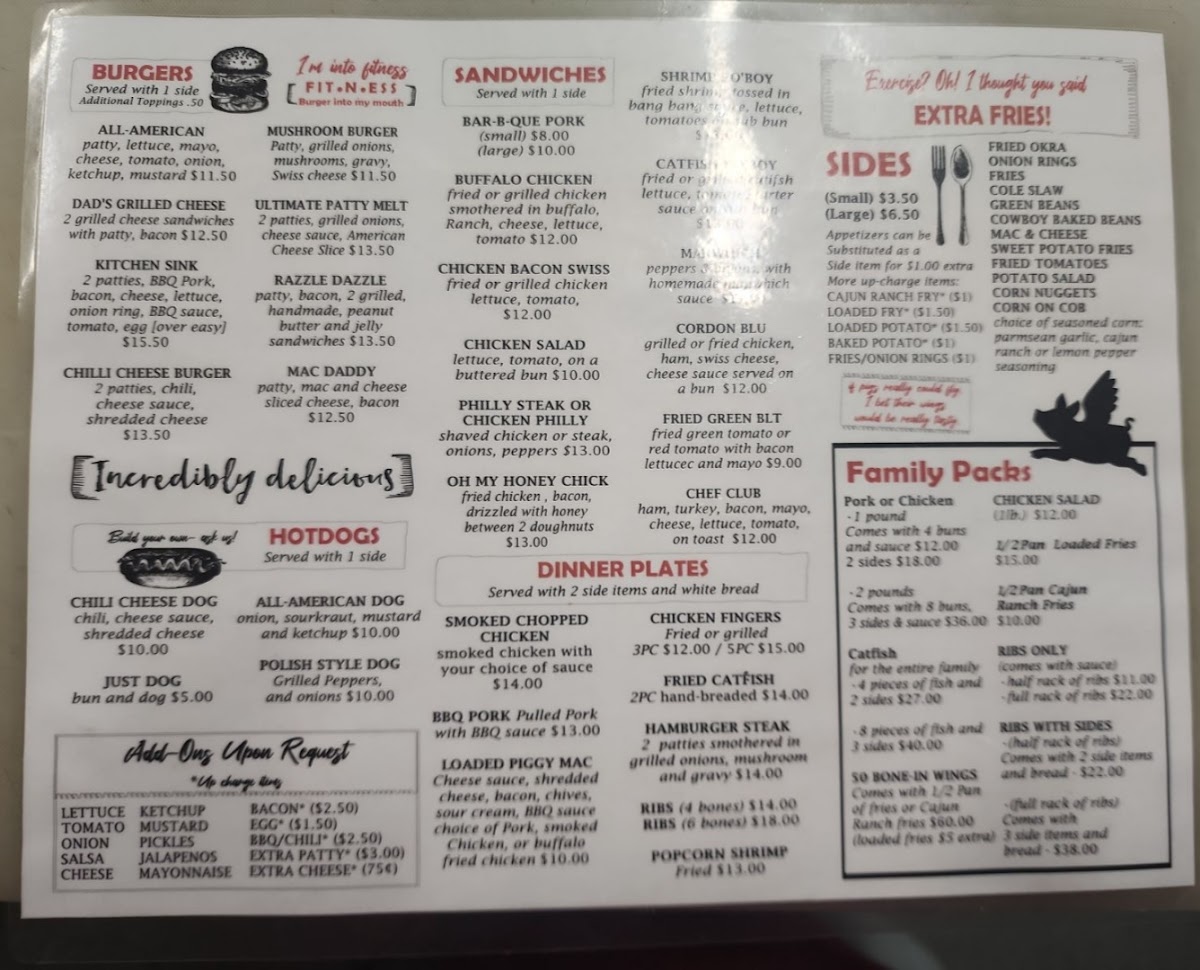 BURGERS
Served with 1 side
Additional Toppings .50
I'm into fitness
FIT•N•ESS
Burger into my mouth
ALL-AMERICAN
patty, lettuce, mayo,
cheese, tomato, onion,
ketchup, mustard $11.50
DAD'S GRILLED CHEESE
2 grilled cheese sandwiches
with patty, bacon $12.50
KITCHEN SINK
2 patties, BBQ Pork,
bacon, cheese, lettuce,
onion ring, BBQ sauce,
tomato, egg [over easy]
$15.50
CHILLI CHEESE BURGER
2 patties, chili,
cheese sauce,
shredded cheese
$13.50
MUSHROOM BURGER
Patty, grilled onions,
mushrooms, gravy,
Swiss cheese $11.50
ULTIMATE PATTY MELT
2 patties, grilled onions,
cheese sauce, American
Cheese Slice $13.50
RAZZLE DAZZLE
patty, bacon, 2 grilled,
handmade, peanut
butter and jelly
sandwiches $13.50
MAC DADDY
patty, mac and cheese
sliced cheese, bacon
$12.50
[Incredibly delicious]
Build your own- ask us!
HOTDOGS
Served with 1 side
CHILI CHEESE DOG
chili, cheese sauce,
shredded cheese
$10.00
JUST DOG
bun and dog $5.00
ALL-AMERICAN DOG
onion, sourkraut, mustard
and ketchup $10.00
POLISH STYLE DOG
Grilled Peppers,
and onions $10.00
Add-Ons Upon Request
*Up charge items
LETTUCE
TOMATO
ONION
SALSA
CHEESE
KETCHUP
MUSTARD
PICKLES
JALAPENOS
MAYONNAISE
BACON* ($2.50)
EGG* ($1.50)
BBQ/CHILI* ($2.50)
EXTRA PATTY* ($3.00)
EXTRA CHEESE* (75¢)
SANDWICHES
Served with 1 side
BAR-B-QUE PORK
(small) $8.00
(large) $10.00
BUFFALO CHICKEN
fried or grilled chicken
smothered in buffalo,
Ranch, cheese, lettuce,
tomato $12.00
CHICKEN BACON SWISS
fried or grilled chicken
lettuce, tomato,
$12.00
CHICKEN SALAD
lettuce, tomato, on a
buttered bun $10.00
PHILLY STEAK OR
CHICKEN PHILLY
shaved chicken or steak,
onions, peppers $13.00
OH MY HONEY CHICK
fried chicken , bacon,
drizzled with honey
between 2 doughnuts
$13.00
SHRIMP O'BOY
fried shrimp tossed in
bang bang lettuce,
tomatoes bun
CATFISH
fried or catifsh
lettuce,
sauce
peppers with
homemade
sauce
CORDON BLU
grilled or fried chicken,
ham, swiss cheese,
cheese sauce served on
a bun $12.00
FRIED GREEN BLT
fried green tomato or
red tomato with bacon
lettucec and mayo $9.00
CHEF CLUB
ham, turkey, bacon, mayo,
cheese, lettuce, tomato,
on toast $12.00
DINNER PLATES
Served with 2 side items and white bread
SMOKED CHOPPED
CHICKEN
smoked chicken with
your choice of sauce
$14.00
BBQ PORK Pulled Pork
with BBQ sauce $13.00
LOADED PIGGY MAC
Cheese sauce, shredded
cheese, bacon, chives,
sour cream, BBQ sauce
choice of Pork, smoked
Chicken, or buffalo
fried chicken $10.00
CHICKEN FINGERS
Fried or grilled
3PC $12.00 / 5PC $15.00
FRIED CATFISH
2PC hand-breaded $14.00
HAMBURGER STEAK
2 patties smothered in
grilled onions, mushroom
and gravy $14.00
RIBS (4 bones) $14.00
RIBS (6 bones) $18.00
POPCORN SHRIMP
Fried $13.00
Exercise? Oh! I thought you said
EXTRA FRIES!
SIDES
(Small) $3.50
(Large) $6.50
Appetizers can be
Substituted as a
Side item for $1.00 extra
More up-charge items:
CAJUN RANCH FRY* ($1)
LOADED FRY* ($1.50)
LOADED POTATO* ($1.50)
BAKED POTATO* ($1)
FRIES/ONION RINGS ($1)
FRIED OKRA
ONION RINGS
FRIES
COLE SLAW
GREEN BEANS
COWBOY BAKED BEANS
MAC & CHEESE
SWEET POTATO FRIES
FRIED TOMATOES
POTATO SALAD
CORN NUGGETS
CORN ON COB
choice of seasoned corn:
parmsean garlic, cajun
ranch or lemon pepper
seasoning
if pigs really could fly,
I bet their wings
would be really tasty
Family Packs
Pork or Chicken
-1 pound
Comes with 4 buns
and sauce $12.00
2 sides $18.00
-2 pounds
Comes with 8 buns,
3 sides & sauce $36.00
Catfish
for the entire family
-4 pieces of fish and
2 sides $27.00
-8 pieces of fish and
3 sides $40.00
50 BONE-IN WINGS
Comes with 1/2 Pan
of fries or Cajun
Ranch fries $60.00
(loaded fries $5 extra)
CHICKEN SALAD
(1lb.) $12.00
1/2Pan Loaded Fries
$15.00
1/2Pan Cajun
Ranch Fries
$10.00
RIBS ONLY
(comes with sauce)
-half rack of ribs $11.00
-full rack of ribs $22.00
RIBS WITH SIDES
-(half rack of ribs)
Comes with 2 side items
and bread - $22.00
-(full rack of ribs)
Comes with
3 side items and
bread - $38.00